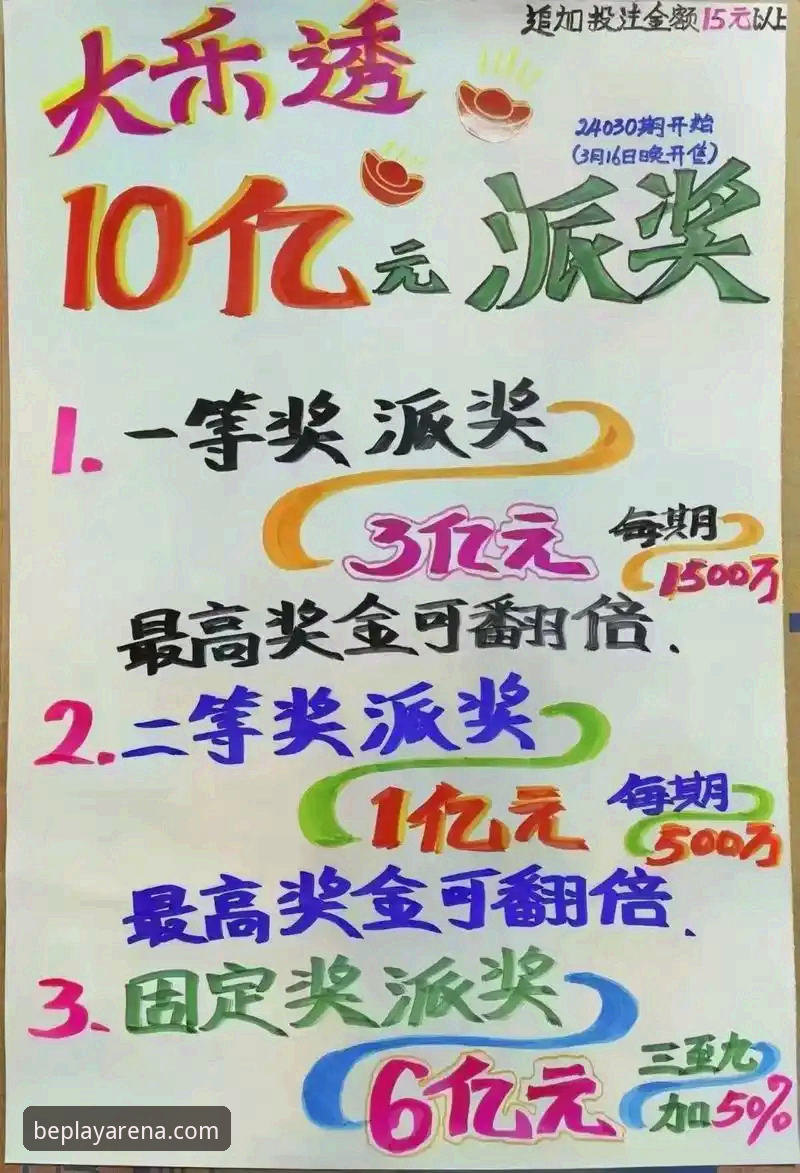 追加投注金额15元以上
大乐透
24030期开始
(3月16日晚开售)
10亿元派奖
1.一等奖派奖
3亿元 每期
1500万
最高奖金可翻倍.
2.二等奖派奖
1亿元 每期
500万
最高奖金可翻倍.
3.固定奖派奖
6亿元 三至九
加50%
beplayarena.com